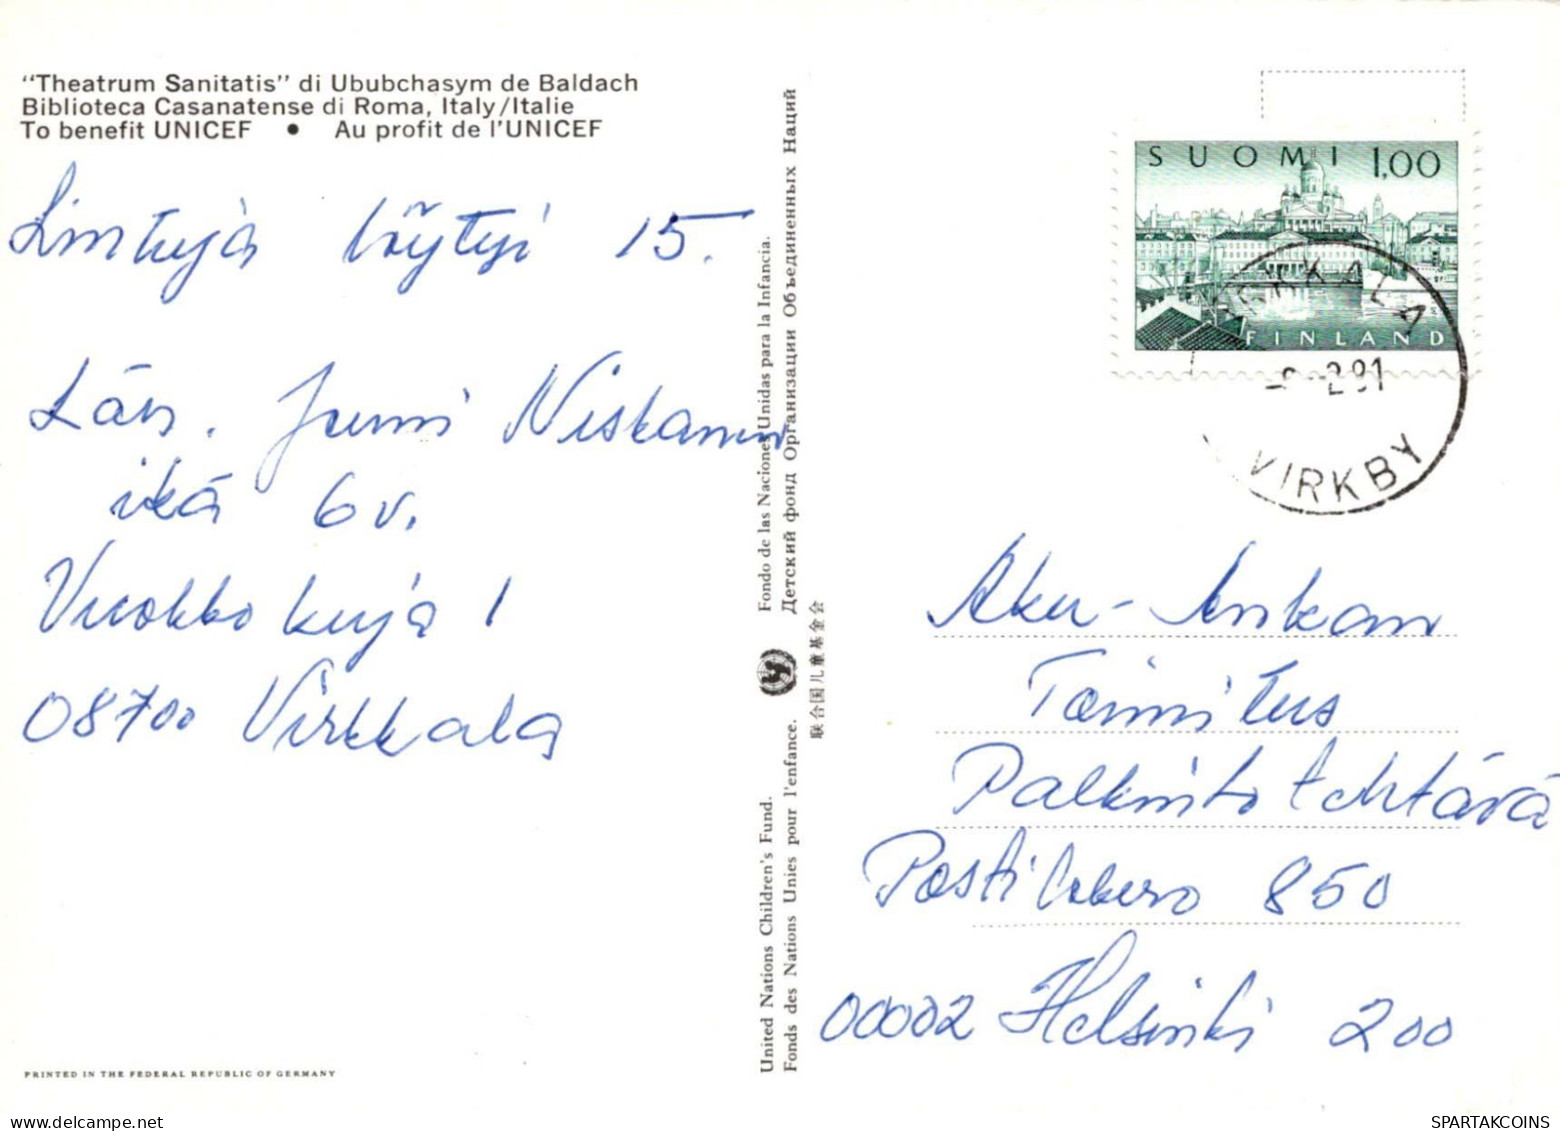 "Theatrum Sanitatis" di Ububchasym de Baldach
Biblioteca Casanatense di Roma, Italy/Italie
To benefit UNICEF • Au profit de l'UNICEF
Lintuja löytyi 15.
Läh. Jumi Niskanen
ikä 6 v.
Vuokkokuja 1
08700 Virkkala
PRINTED IN THE FEDERAL REPUBLIC OF GERMANY
United Nations Children's Fund.
Fonds des Nations Unies pour l'enfance.
Fondo de las Naciones Unidas para la Infancia.
Детский фонд Организации Объединенных Наций
联合国儿童基金会
SUOMI 1,00
FINLAND
VIRKKALA
2.91
VIRKBY
Aku-Ankan
Toimitus
Palkintotehtävä
Postilokero 850
00002 Helsinki 200
SPARTAKCOINS